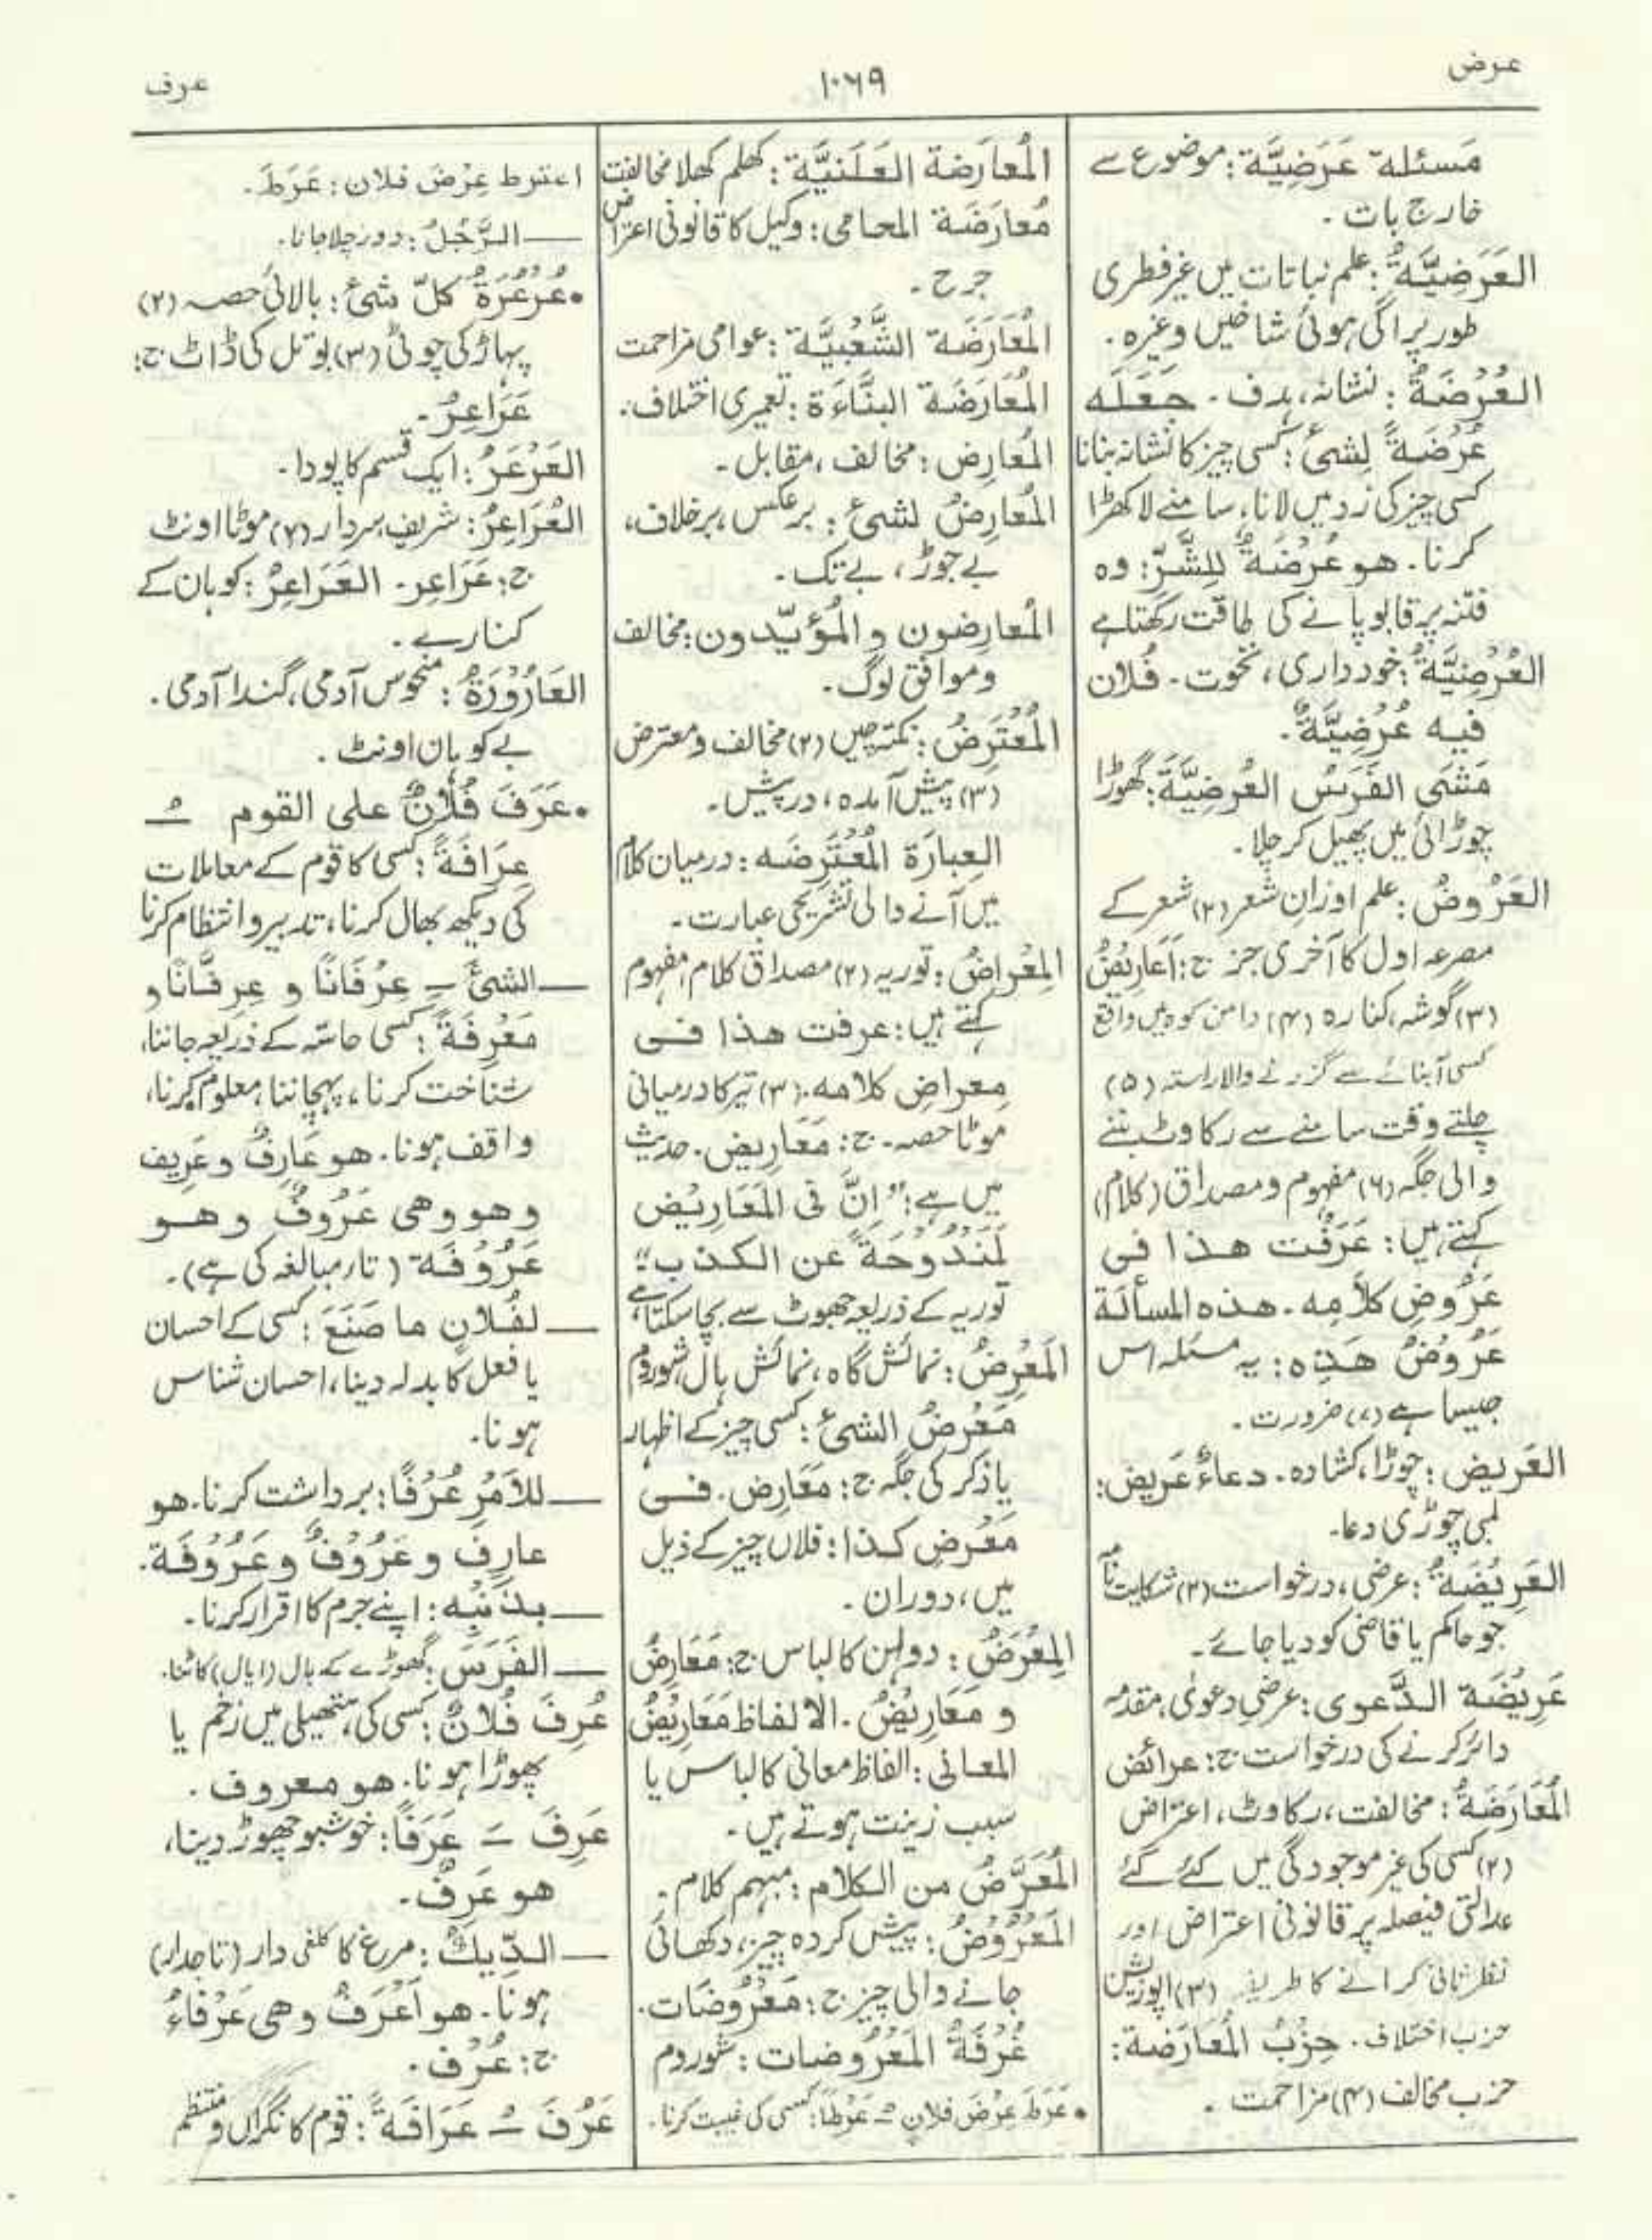 عرض
١٠٦٩
عرف
مَسئلة عَرَضِيَّة: موضوع سے
خارج بات۔
العَرَضِيَّةُ: علم نباتات میں غیر فطری
طور پر اگی ہوئی شاخیں وغیرہ۔
العُرْضَةُ: نشانہ، ہدف۔ جَعَلَه
عُرْضَةً لِشیٔ: کسی چیز کا نشانہ بنانا
کسی چیز کی زد میں لانا، سامنے لا کھڑا
کرنا۔ هو عُرْضَةٌ لِلشَّرِّ: وہ
فتنہ پر قابو پانے کی طاقت رکھتا ہے
العُرْضِيَّةُ: خودداری، نخوت۔ فُلان
فیه عُرْضِيَّةٌ۔
مَشَى الفَرَسُ العُرْضِيَّةَ: گھوڑا
چوڑائی میں پھیل کر چلا۔
العَرُوضُ: علم اوزانِ شعر (۲) شعر کے
مصرعہ اول کا آخری جز ج: أَعَارِيْضُ
(۳) گوشہ، کنارہ (۴) دامن کوہ میں واقع
کسی آبنائے سے گزرنے والا راستہ (۵)
چلتے وقت سامنے سے رکاوٹ بننے
والی جگہ (۶) مفہوم و مصداق (کلام)
کہتے ہیں: عَرَفْت هذا فی
عَرُوضِ كلَامِه۔ هذه المسألة
عَرُوْضُ هَذِه: یہ مسئلہ اس
جیسا ہے (۷) ضرورت۔
العَرِيض: چوڑا، کشادہ۔ دعاءٌ عَريض:
لمبی چوڑی دعا۔
العَرِيْضَةُ: عرضی، درخواست (۲) شکایت نامہ
جو حاکم یا قاضی کو دیا جائے۔
عَرِيْضَة الدَّعوى: عرضیِ دعویٰ، مقدمہ
دائر کرنے کی درخواست ج: عرائض
المُعَارَضَةُ: مخالفت، رکاوٹ، اعتراض
(۲) کسی کی غیر موجودگی میں کئے گئے
عدالتی فیصلہ پر قانونی اعتراض اور
نظر ثانی کرانے کا طریقہ (۳) اپوزیشن
حزب اختلاف۔ حِزْبُ المُعَارَضة:
حزب مخالف (۴) مزاحمت۔
المُعارَضة العَلَنيَّة: کھلم کھلا مخالفت
مُعارَضَة المحامی: وکیل کا قانونی اعتراض
جرح۔
المُعَارَضَة الشَّعْبِيَّة: عوامی مزاحمت
المُعَارَضَة البنَّاءَة: تعمیری اختلاف۔
المُعَارِض: مخالف، مقابل۔
المُعَارِضُ لشیٔ: برعکس، برخلاف،
بے جوڑ، بے تک۔
المُعارِضون و المُؤيّدون: مخالف
و موافق لوگ۔
المُعْتَرِضُ: نکتہ چیں (۲) مخالف و معترض
(۳) پیش آمدہ، درپیش۔
العِبارَة المُعْتَرِضَه: درمیان کلام
میں آنے والی تشریحی عبارت۔
المِعْراضُ: توریہ (۲) مصداق کلام، مفہوم
کہتے ہیں: عرفت هذا فی
معراضِ كلامه۔ (۳) تیر کا درمیانی
موٹا حصہ۔ ج: مَعَارِيض۔ حدیث
میں ہے: "انَّ فی المَعَارِيْض
لَمَنْدُوْحَةً عن الكذب":
توریہ کے ذریعہ جھوٹ سے بچا سکتا ہے
المَعْرِضُ: نمائش گاہ، نمائش ہال، شوروم
مَعْرِضُ الشیٔ: کسی چیز کے اظہار
یا ذکر کی جگہ ج: مَعَارِض۔ فی
مَعْرِضِ كذا: فلاں چیز کے ذیل
میں، دوران۔
المِعْرَضُ: دولہن کا لباس ج: مَعَارِضُ
و مَعَارِيْضُ۔ الالفاظ مَعَارِيْضُ
المعانی: الفاظ معانی کا لباس یا
سبب زینت ہوتے ہیں۔
المُعَرَّضُ من الكلام: مبہم کلام۔
المَعْرُوْضُ: پیش کردہ چیز، دکھائی
جانے والی چیز ج: مَعْرُوضَات۔
غُرْفَةُ المَعْرُوضات: شوروم
• عَرَطَ عِرْضَ فلان ـُ عَرْطًا: کسی کی غیبت کرنا۔
اعترط عِرْضَ فلان: عَرَطَ۔
ـــ الرَّجُلُ: دور چلا جانا۔
• عُرْعُرَةُ كلّ شیٔ: بالائی حصہ (۲)
پہاڑ کی چوٹی (۳) بوتل کی ڈاٹ ج:
عَرَاعِرُ۔
العَرْعَرُ: ایک قسم کا پودا۔
العُرَاعِرُ: شریف، سردار (۲) موٹا اونٹ
ج: عَرَاعِر۔ العَرَاعِرُ: کوہان کے
کنارے۔
العَارُوْرَةُ: منحوس آدمی، گندا آدمی۔
بے کوہان اونٹ۔
• عَرَفَ فُلَانٌ علی القوم ـُ
عِرَافَةً: کسی کا قوم کے معاملات
کی دیکھ بھال کرنا، تدبیر و انتظام کرنا
ـــ الشیٔ ـِ عِرْفَانًا و عِرِفَّانًا و
مَعْرِفَةً: کسی حاسّہ کے ذریعہ جاننا،
شناخت کرنا، پہچاننا، معلوم کرنا،
واقف ہونا۔ هو عَارِفٌ و عَرِيف
و هو وهی عَرُوفٌ و هو
عَرُوْفَة (تاء مبالغہ کی ہے)۔
ـــ لفُلان ما صَنَعَ: کسی کے احسان
یا فعل کا بدلہ دینا، احسان شناس
ہونا۔
ـــ للأَمْرِ عُرْفًا: برداشت کرنا۔ هو
عارِف و عَرُوْفٌ و عَرُوْفَة۔
ـــ بذَنْبِه: اپنے جرم کا اقرار کرنا۔
ـــ الفَرَسَ: گھوڑے کے بال (ایال) کاٹنا۔
عُرِفَ فُلانٌ: کسی کی ہتھیلی میں زخم یا
پھوڑا ہونا۔ هو معروف۔
عَرِفَ ـَ عَرَفًا: خوشبو چھوڑ دینا،
هو عَرِفٌ۔
ـــ الدّيكُ: مرغ کا کلغی دار (تاجدار)
ہونا۔ هو أعْرَفُ وهی عَرْفاءُ
ج: عُرْف۔
عَرُفَ ـُ عَرَافَةً: قوم کا نگراں و منتظم